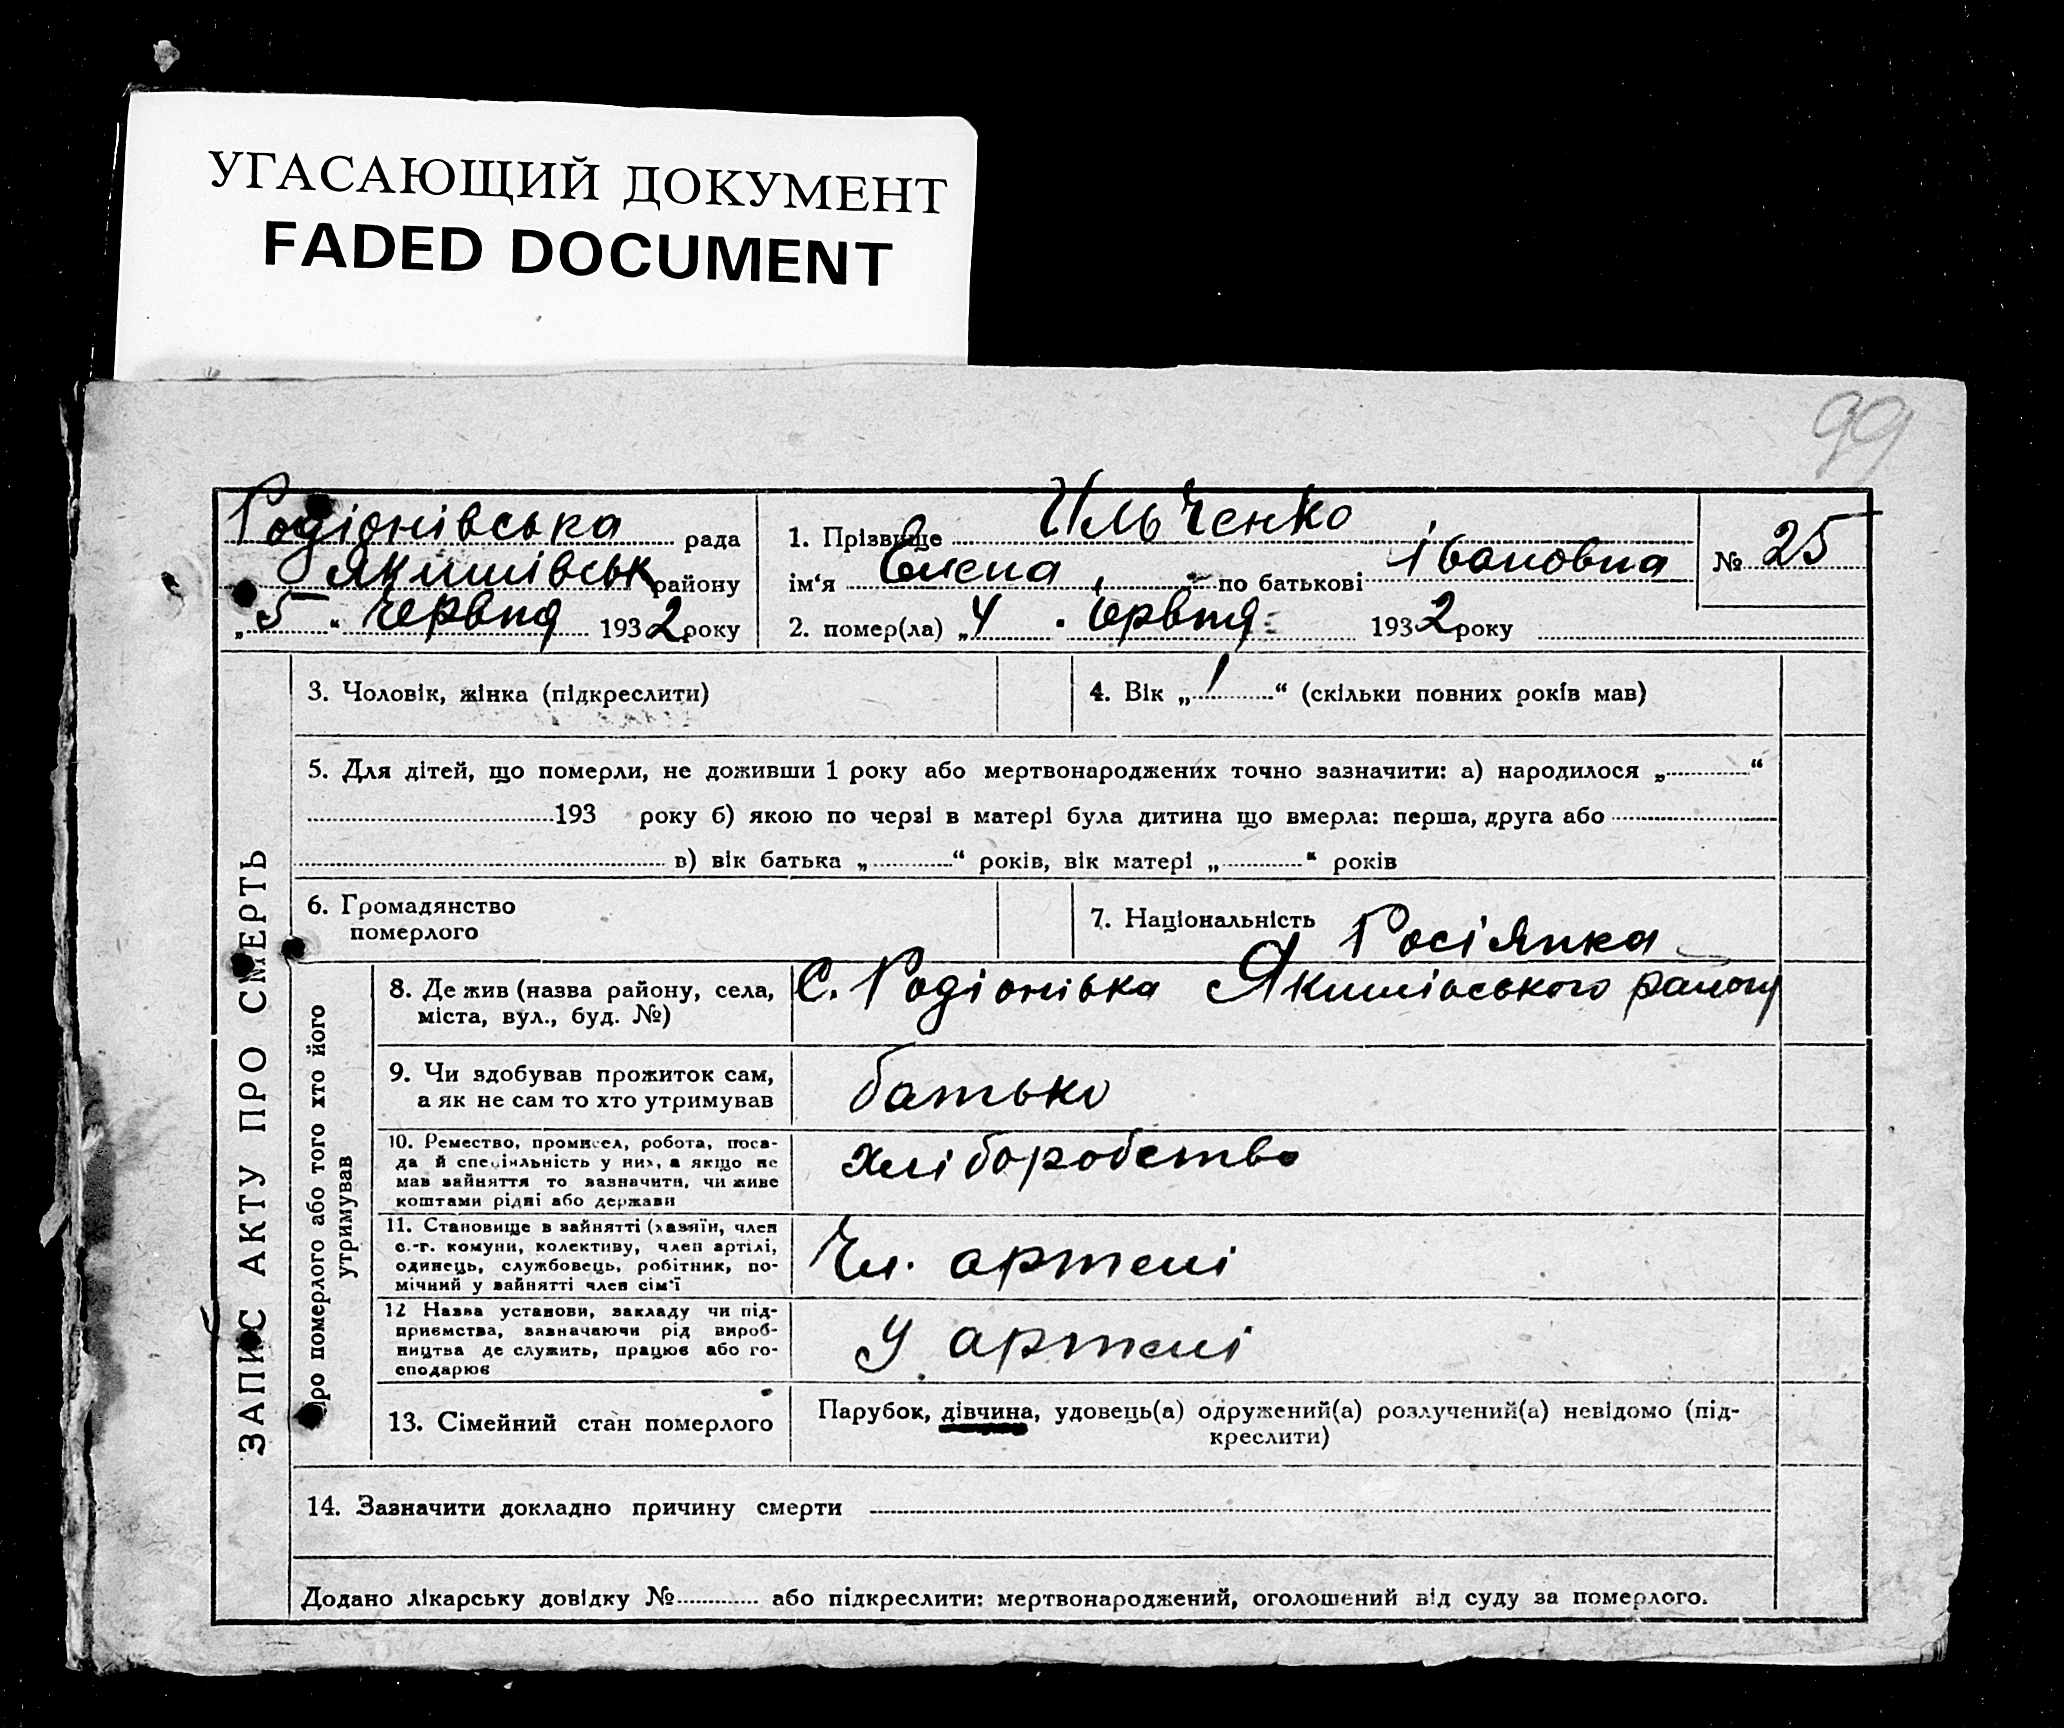 УГАСАЮЩИЙ ДОКУМЕНТ
FADED DOCUMENT
99
Родіонівська рада
Якимівськ району
„5“ Червня 1932 року
1. Прізвище Ильченко
ім‘я Елена по батькові Івановна
2. помер(ла) „4 Червня 1932 року
№ 25
ЗАПИС АКТУ ПРО СМЕРТЬ
3. Чоловік, жінка (підкреслити)
4. Вік „1“ (скільки повних років мав)
5. Для дітей, що померли, не доживши 1 року або мертвонароджених точно зазначити: а) народилося „ “
193 року б) якою по черзі в матері була дитина що вмерла: перша, друга або
в) вік батька „ “ років, вік матері „ “ років
6. Громадянство
померлого
7. Національність Росіянка
Про померлого або того хто його
утримував
8. Де жив (назва району, села,
міста, вул., буд. №)
С. Родіонівка Якимівського району
9. Чи здобував прожиток сам,
а як не сам то хто утримував
батько
10. Ремество, промисел, робота, поса-
да й спеціяльність у них, а якщо не
мав зайняття то зазначити, чи живе
коштами рідні або держави
хліборобство
11. Становище в зайнятті (хазяїн, член
с.-г. комуни, колективу, член артілі,
одинець, службовець, робітник, по-
мічний у зайнятті член сім‘ї
Чл. артелі
12 Назва установи, закладу чи під-
приємства, зазначаючи рід вироб-
ництва де служить, працює або го-
сподарює
У артелі
13. Сімейний стан померлого
Парубок, дівчина, удовець(а) одружений(а) розлучений(а) невідомо (під-
креслити)
14. Зазначити докладно причину смерти
Додано лікарську довідку № або підкреслити: мертвонароджений, оголошений від суду за померлого.